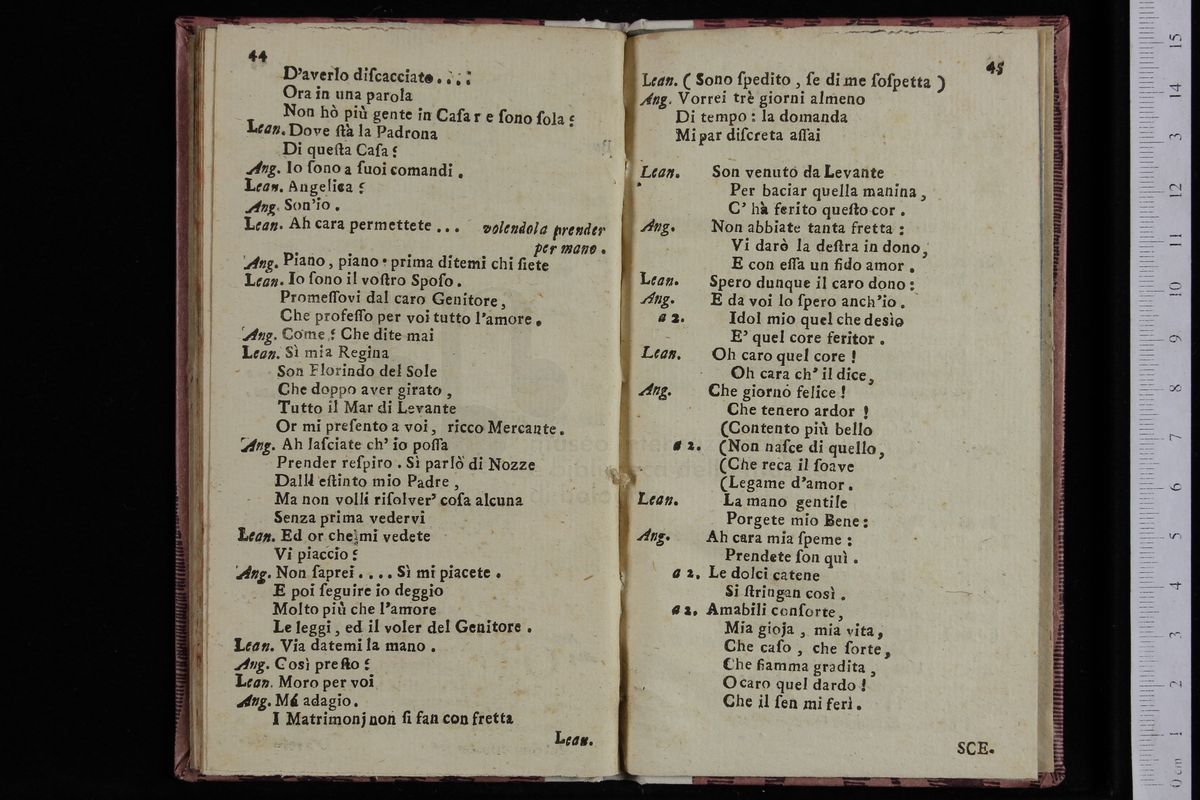 44
D'averlo diſcacciato....:
Ora in una parola
Non hò più gente in Caſa r e ſono ſola?
Lean. Dove ſtà la Padrona
Di queſta Caſa?
Ang. Io ſono a ſuoi comandi.
Lean. Angelica?
Ang. Son'io.
Lean. Ah cara permettete ... volendola prender
per mano.
Ang. Piano, piano: prima ditemi chi ſiete
Lean. Io ſono il voſtro Spoſo.
Promeſſovi dal caro Genitore,
Che profeſſo per voi tutto l'amore.
Ang. Come? Che dite mai
Lean. Sì mia Regina
Son Florindo del Sole
Che doppo aver girato,
Tutto il Mar di Levante
Or mi preſento a voi, ricco Mercante.
Ang. Ah laſciate ch' io poſſa
Prender reſpiro. Sì parlò di Nozze
Dall' eſtinto mio Padre,
Ma non volli riſolver' coſa alcuna
Senza prima vedervi
Lean. Ed or che mi vedete
Vi piaccio?
Ang. Non ſaprei.... Sì mi piacete.
E poi ſeguire io deggio
Molto più che l'amore
Le leggi, ed il voler del Genitore.
Lean. Via datemi la mano.
Ang. Così preſto?
Lean. Moro per voi
Ang. Má adagio.
I Matrimonj non ſi fan con fretta
Lean.
45
Lean. ( Sono ſpedito, ſe di me ſoſpetta )
Ang. Vorrei trè giorni almeno
Di tempo: la domanda
Mi par diſcreta aſſai
Lean. Son venuto da Levante
Per baciar quella manina,
C' hà ferito queſto cor.
Ang. Non abbiate tanta fretta:
Vi darò la deſtra in dono,
E con eſſa un fido amor.
Lean. Spero dunque il caro dono:
Ang. E da voi lo ſpero anch'io.
a 2. Idol mio quel che desìo
E' quel core feritor.
Lean. Oh caro quel core!
Oh cara ch' il dice,
Ang. Che giornò felice!
Che tenero ardor!
(Contento più bello
a 2. (Non naſce di quello,
(Che reca il ſoave
(Legame d'amor.
Lean. La mano gentile
Porgete mio Bene:
Ang. Ah cara mia ſpeme:
Prendete ſon quì.
a 2. Le dolci catene
Si ſtringan così.
a 2. Amabili conſorte,
Mia gioja, mia vita,
Che caſo, che ſorte,
Che fiamma gradita,
O caro quel dardo!
Che il ſen mi ferì.
SCE.
0 cm 1 2 3 4 5 6 7 8 9 10 11 12 13 14 15